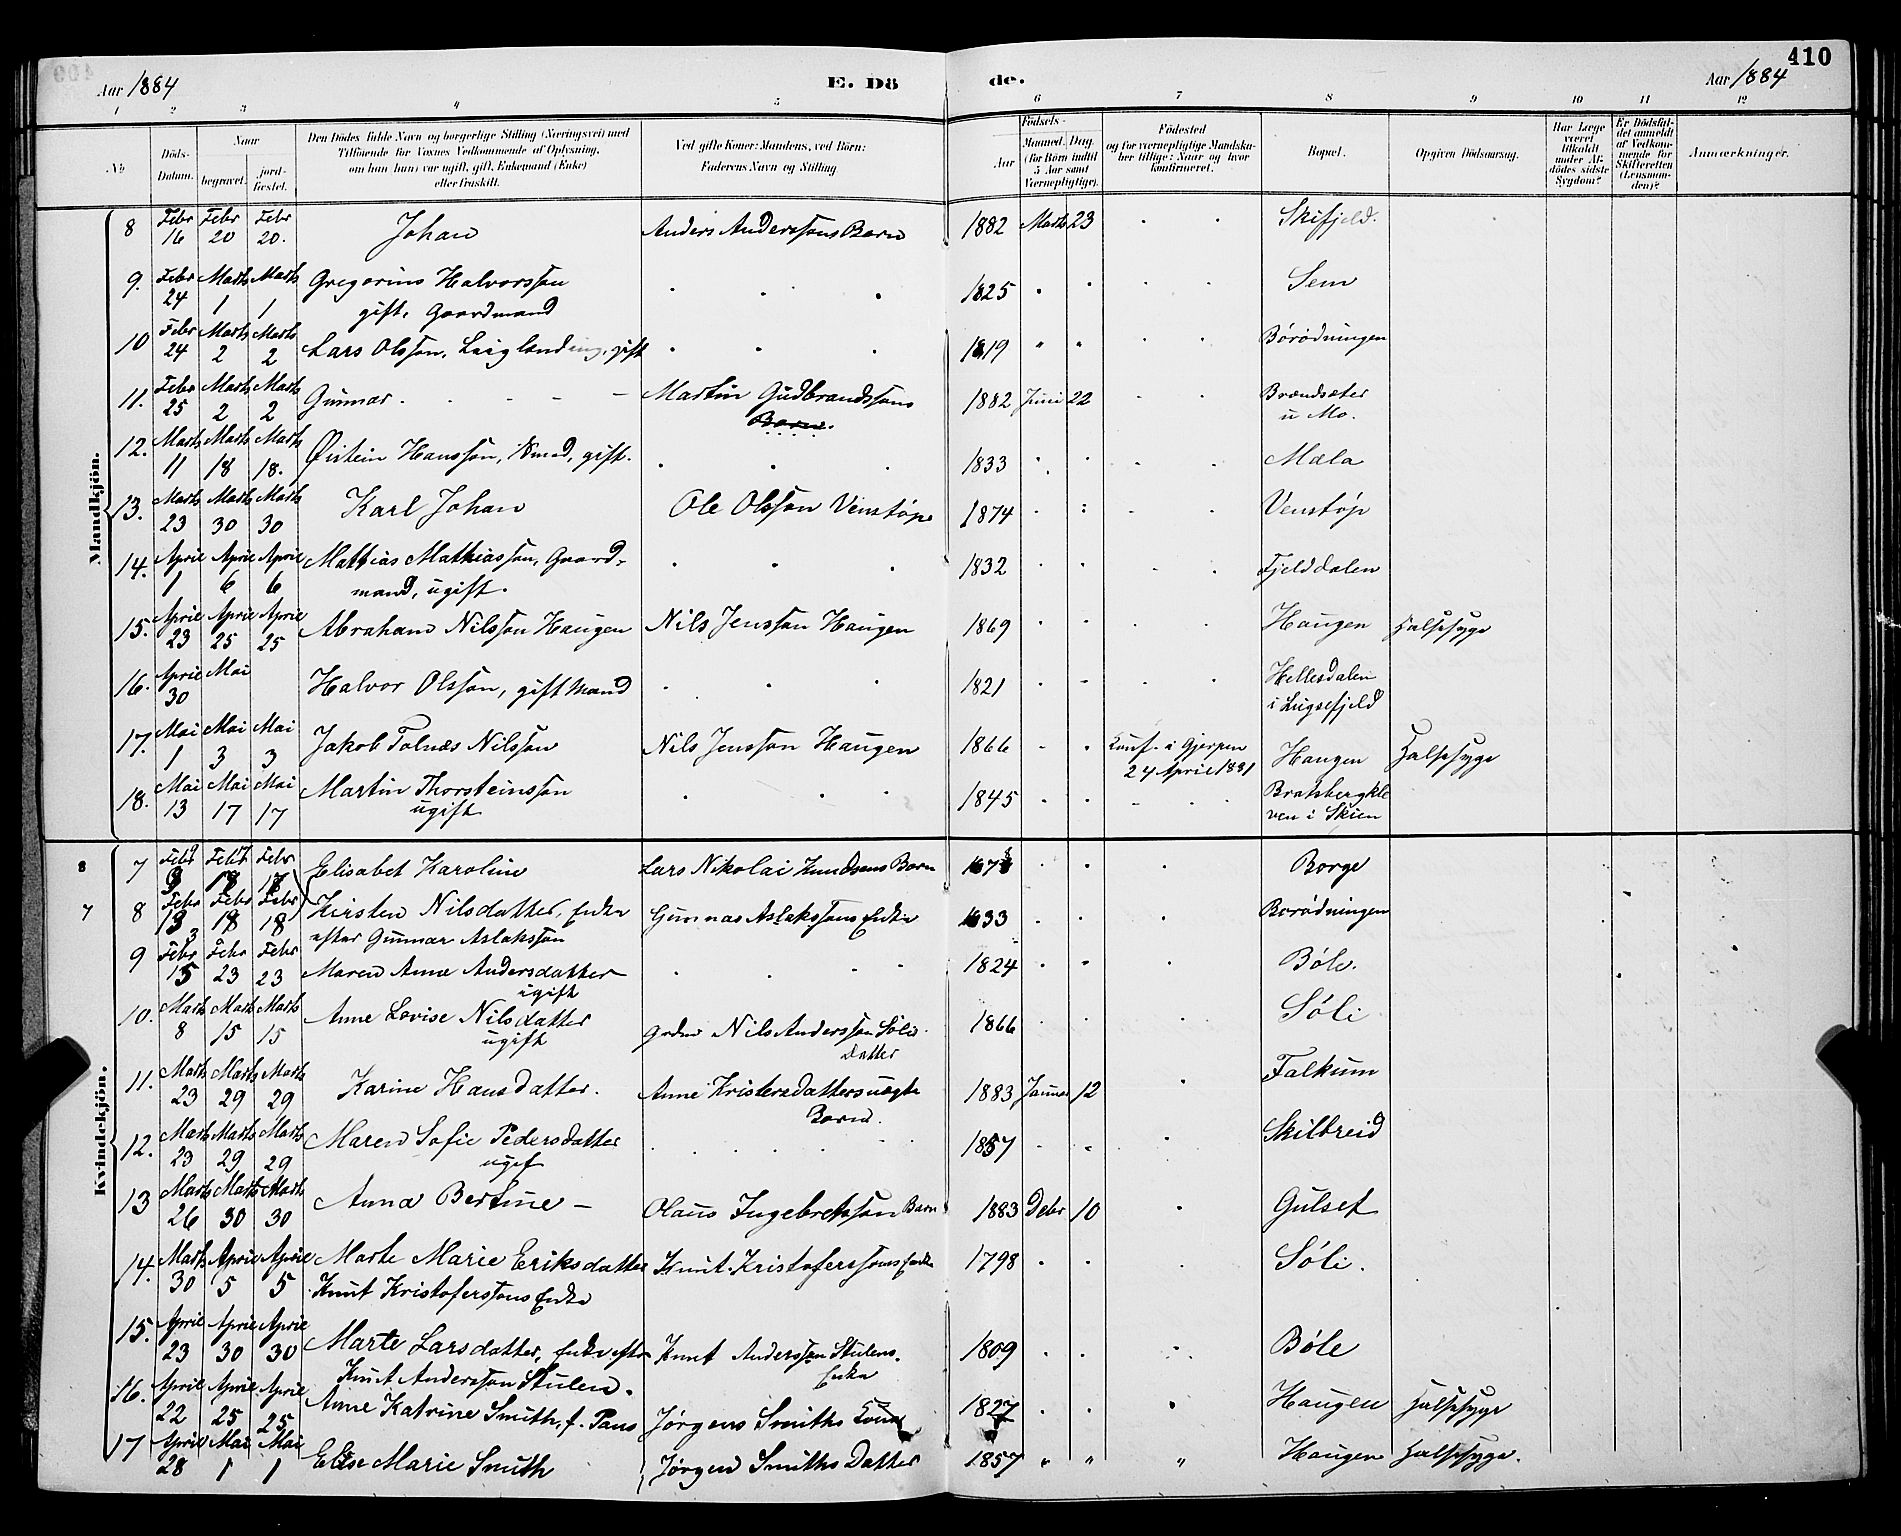 410
Aar 1884
E. Döde.
Aar 1884
1 2 3 4 5 6 7 8 9 10 11 12
No
Döds-Datum.
Naar
begravet.
jord-fæstet.
Den Dödes fulde Navn og borgerlige Stilling (Næringsvei) med
Tilföiende for Voxnes Vedkommende af Oplysning,
om han (hun) var ugift, gift, Enkemand (Enke)
eller fraskilt.
Ved gifte Koner: Mandens, ved Börn:
Faderens Navn og Stilling
Födsels-
Aar
Maaned. Dag.
(for Börn indtil
5 Aar samt
Værnepligtige).
Födested
og for værnepligtige Mandska-
ber tillige: Naar og hvor
konfirmeret.
Bopæl.
Opgiven Dödsaarsag.
Har Læge
været
tilkaldt
under Af-
dødes sidste
Sygdom?
Er Dödsfal-
det anmeldt
af Vedkom-
mende for
Skifteretten
(Lensman-
den)?
Anmærkninger.
Mandkjön.
8 Febr 16 Febr 20 Febr 20. Johan Anders Anderssons Barn 1882 Marts 23 Skifjeld.
9. Febr 24 Marts 1 Marts 1 Gregorius Halvorsson 1825 Sem
gift, Gaardmand
10 Febr 24 Marts 2 Marts 2 Lars Olsson, Leiglending, gift 1819 Börödningen
11. Febr 25 Marts 2 Marts 2 Gunnar Martin Gudbrandssons 1882 Juni 22 Brændsæter
Barn. u Mo.
12. Marts 11 Marts 18 Marts 18. Øistein Hansson, gift. 1833 Mæla
13. Marts 23 Marts 30 Marts 30 Karl Johan Ole Olsson Venstøp 1874 Venstøp
14. April 1 April 6 April 6 Mathias Mathiasson, Gaard- 1832 Fjelddalen
mand, ugift.
15. April 23 April 25 April 25 Abraham Nilsson Haugen Nils Jensson Haugen 1869 Haugen Halssyge
16. April 30 Mai Halvor Olsson, gift Mand 1821 Hellesdalen
i Lugsefjeld
17. Mai 1 Mai 3 Mai 3 Jakob Tolnæs Nilsson Nils Jensson Haugen 1866 Konf. i Gjerpen Haugen Halssyge
24 April 1881
18. Mai 13 Mai 17 Mai 17 Martin Thorsteinsson 1845 Bratsbergkle
ugift ven i Skien
Kvindekjön.
8 7 Febr 9 Febr 17 Febr 17 Elisabet Karoline Lars Nikolai Knudsens Barn 1878 Borge
7 8 Febr 13 Febr 18 Febr 18 Kirsten Nilsdatter, Enke Gunnar Aslakssons Enke 1833 Borödningen
efter Gunnar Aslaksson
9 Febr 15 Febr 23 Febr 23 Maren Anne Andersdatter 1824 Böle.
ugift
10. Marts 8 Marts 15 Marts 15 Anne Lovise Nilsdatter Nils Andersson Söli 1866 Söli
ugift Datter
11. Marts 23 Marts 29 Marts 29 Karine Hansdatter. Anne Kristensdatters uægte 1883 Januar 12 Falkum
Barn.
12. Marts 23 Marts 29 Marts 29 Maren Sofie Pedersdatter 1857 Skilbreid
ugift
13 Marts 26 Marts 30 Marts 30 Anna Bertine Olaus Ingebretsson Barn 1883 Debr 10 Gulset
14. Marts 30 April 5 April 5 Marte Marie Eriksdatter Knut Kristoferssons Enke 1798 Söli.
Knut Kristoferssons Enke
15. April 23 April 30 April 30 Marte Larsdatter, Enke efter Knut Andersson Stulens 1809 Böle
Knut Andersson Stulen. Enke
16. April 22 April 25 April 25 Anne Katrine Smith, f. Paus Jörgens Smiths Kone 1827 Haugen Halssyge
17 April 28 Mai 1 Mai 1 Elise Marie Smith Jörgen Smiths Datter 1857 Haugen Halssyge.